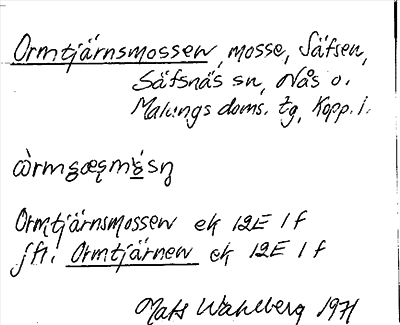 Ormtjärnsmossen, mosse, Säfsen,
Säfsnäs sn, Nås o.
Malungs doms. tg, Kopp. l.
Ormtjärnsmossen ek 12E 1f
jfr. Ormtjärnen ek 12E 1f
Mats Wahlberg 1971